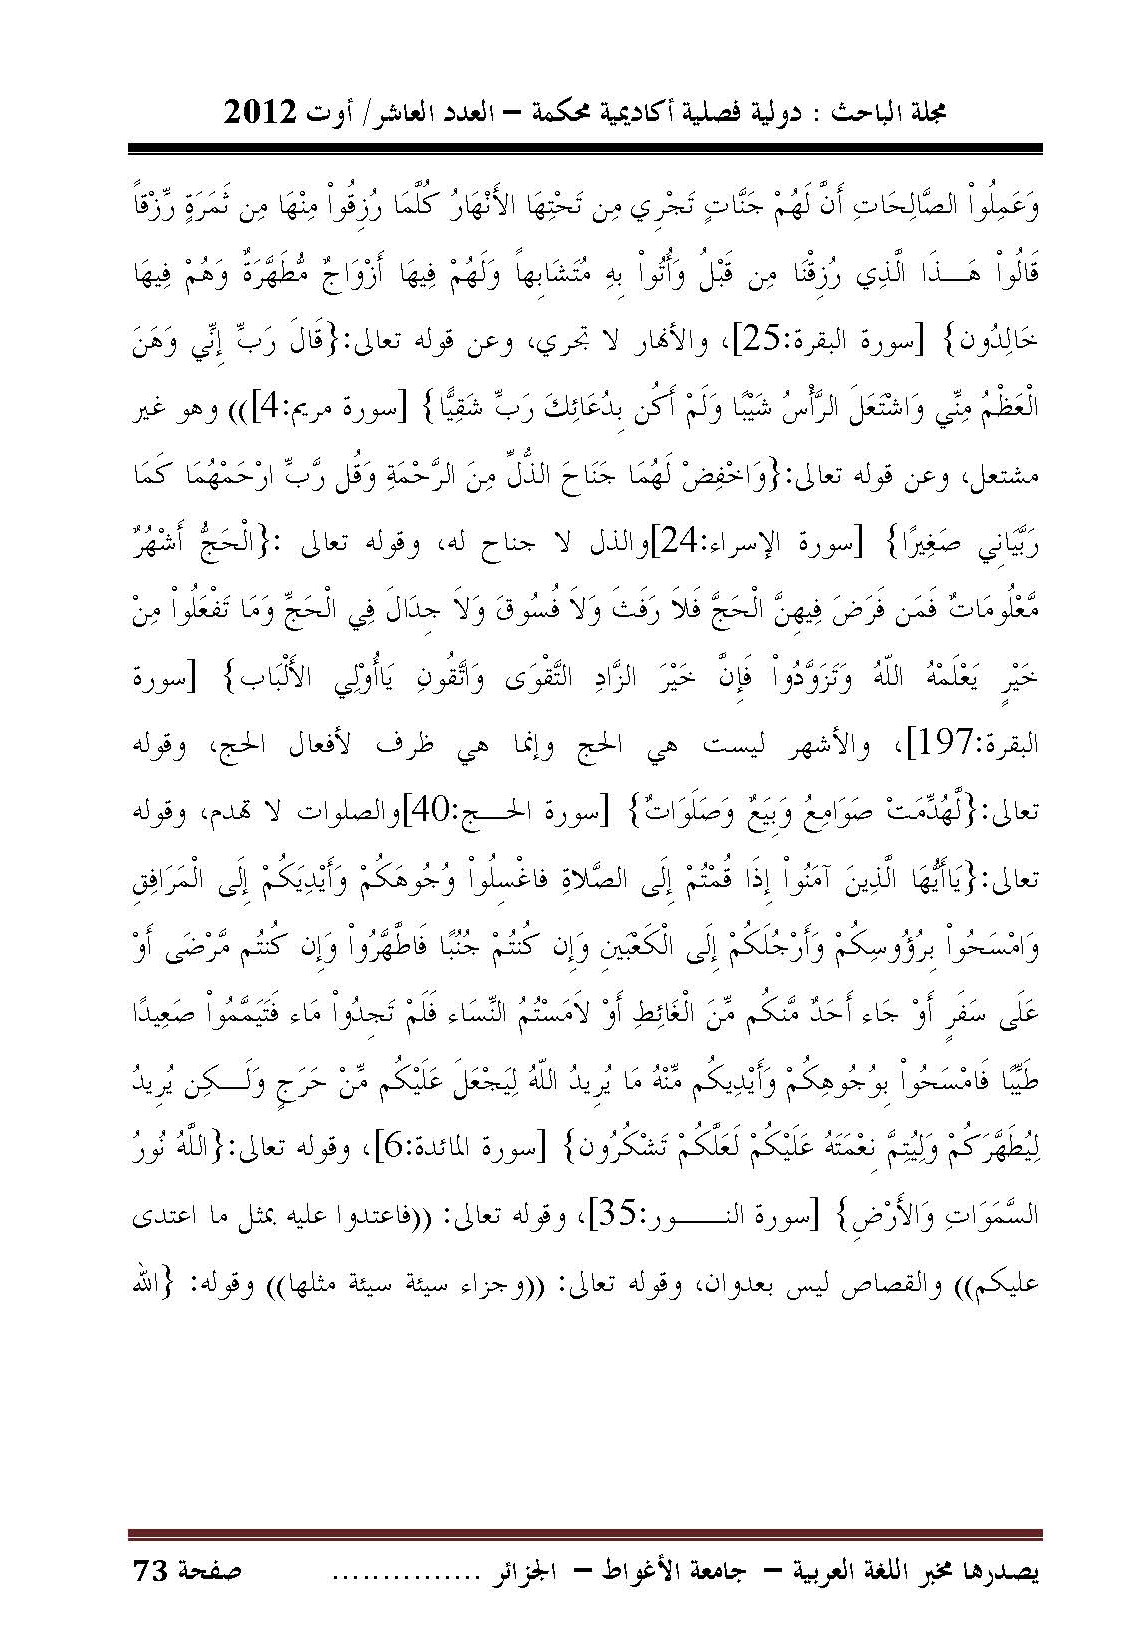 مجلة الباحث : دولية فصلية أكاديمية محكمة – العدد العاشر/ أوت 2012
وَعَمِلُواْ الصَّالِحَاتِ أَنَّ لَهُمْ جَنَّاتٍ تَجْرِي مِن تَحْتِهَا الأَنْهَارُ كُلَّمَا رُزِقُواْ مِنْهَا مِن ثَمَرَةٍ رِّزْقاً
قَالُواْ هَـــذَا الَّذِي رُزِقْنَا مِن قَبْلُ وَأُتُواْ بِهِ مُتَشَابِهاً وَلَهُمْ فِيهَا أَزْوَاجٌ مُّطَهَّرَةٌ وَهُمْ فِيهَا
خَالِدُون} [سورة البقرة:25]، والأنهار لا تجري، وعن قوله تعالى:{قَالَ رَبِّ إِنِّي وَهَنَ
الْعَظْمُ مِنِّي وَاشْتَعَلَ الرَّأْسُ شَيْبًا وَلَمْ أَكُن بِدُعَائِكَ رَبِّ شَقِيًّا} [سورة مريم:4])) وهو غير
مشتعل، وعن قوله تعالى:{وَاخْفِضْ لَهُمَا جَنَاحَ الذُّلِّ مِنَ الرَّحْمَةِ وَقُل رَّبِّ ارْحَمْهُمَا كَمَا
رَبَّيَانِي صَغِيرًا} [سورة الإسراء:24]والذل لا جناح له، وقوله تعالى :{الْحَجُّ أَشْهُرٌ
مَّعْلُومَاتٌ فَمَن فَرَضَ فِيهِنَّ الْحَجَّ فَلاَ رَفَثَ وَلاَ فُسُوقَ وَلاَ جِدَالَ فِي الْحَجِّ وَمَا تَفْعَلُواْ مِنْ
خَيْرٍ يَعْلَمْهُ اللّهُ وَتَزَوَّدُواْ فَإِنَّ خَيْرَ الزَّادِ التَّقْوَى وَاتَّقُونِ يَاأُوْلِي الأَلْبَاب} [سورة
البقرة:197]، والأشهر ليست هي الحج وإنما هي ظرف لأفعال الحج، وقوله
تعالى:{لَّهُدِّمَتْ صَوَامِعُ وَبِيَعٌ وَصَلَوَاتٌ} [سورة الحـــج:40]والصلوات لا تهدم، وقوله
تعالى:{يَاأَيُّهَا الَّذِينَ آمَنُواْ إِذَا قُمْتُمْ إِلَى الصَّلاةِ فاغْسِلُواْ وُجُوهَكُمْ وَأَيْدِيَكُمْ إِلَى الْمَرَافِقِ
وَامْسَحُواْ بِرُؤُوسِكُمْ وَأَرْجُلَكُمْ إِلَى الْكَعْبَينِ وَإِن كُنتُمْ جُنُبًا فَاطَّهَّرُواْ وَإِن كُنتُم مَّرْضَى أَوْ
عَلَى سَفَرٍ أَوْ جَاء أَحَدٌ مَّنكُم مِّنَ الْغَائِطِ أَوْ لاَمَسْتُمُ النِّسَاء فَلَمْ تَجِدُواْ مَاء فَتَيَمَّمُواْ صَعِيدًا
طَيِّبًا فَامْسَحُواْ بِوُجُوهِكُمْ وَأَيْدِيكُم مِّنْهُ مَا يُرِيدُ اللّهُ لِيَجْعَلَ عَلَيْكُم مِّنْ حَرَجٍ وَلَـــكِن يُرِيدُ
لِيُطَهَّرَكُمْ وَلِيُتِمَّ نِعْمَتَهُ عَلَيْكُمْ لَعَلَّكُمْ تَشْكُرُون} [سورة المائدة:6]، وقوله تعالى:{اللَّهُ نُورُ
السَّمَوَاتِ وَالأَرْضِ} [سورة النـــــور:35]، وقوله تعالى: ((فاعتدوا عليه بمثل ما اعتدى
عليكم)) والقصاص ليس بعدوان، وقوله تعالى: ((وجزاء سيئة سيئة مثلها)) وقوله: {الله
يصدرها مخبر اللغة العربية – جامعة الأغواط – الجزائر ............... صفحة 73